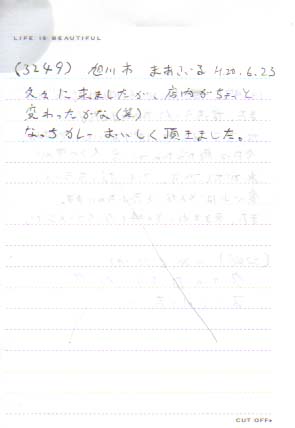 LIFE IS BEAUTIFUL
(3249) 旭川市 まあさいる H20.6.23
久々に来ましたが、店内がちょっと
変わったかな(笑)
なっちカレーおいしく頂きました。
CUT OFF